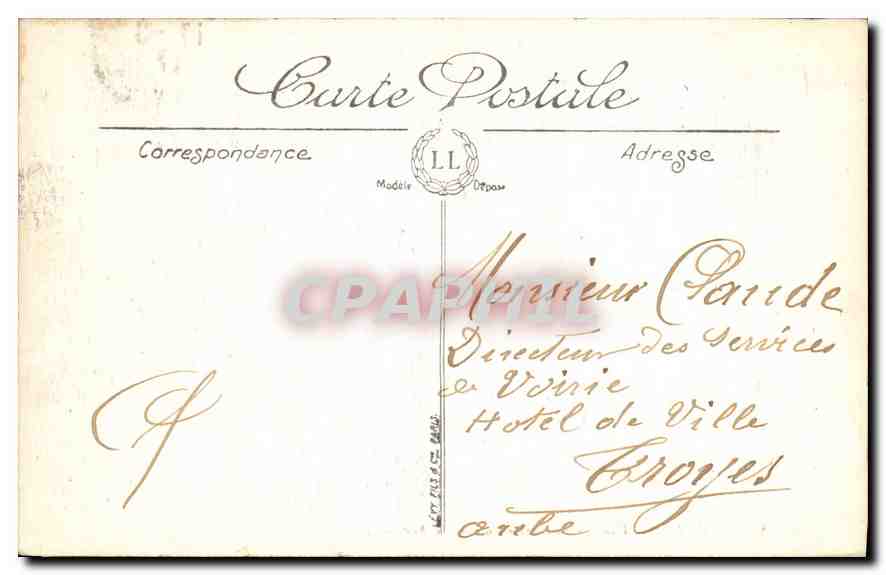 Carte Postale
Correspondance
LL
Adresse
Modèle Déposé
CPAPHIL
Monsieur Claude
Directeur des Services
de Voirie
Hotel de Ville
Troyes
aube
LÉVY FILS & Cie PARIS.